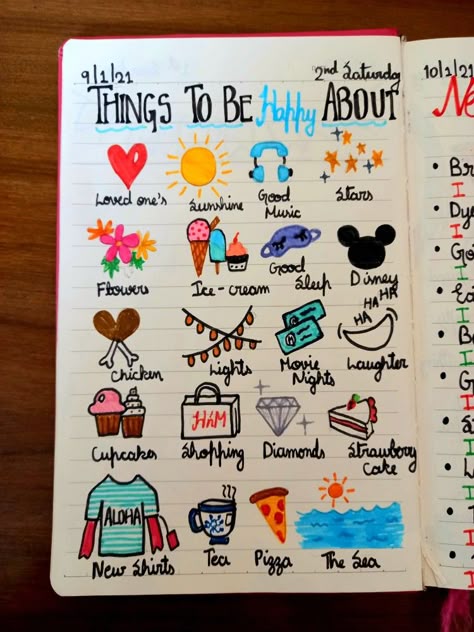 9/1/21 2nd Saturday
THINGS TO BE Happy ABOUT
Loved one's Sunshine Good Music Stars
Flowers Ice-cream Good Sleep Disney
HA HA HA
Chicken Lights Movie Nights Laughter
H&M
Cupcakes Shopping Diamonds Strawberry Cake
ALOHA
New Shirts Tea Pizza The Sea
10/1/21